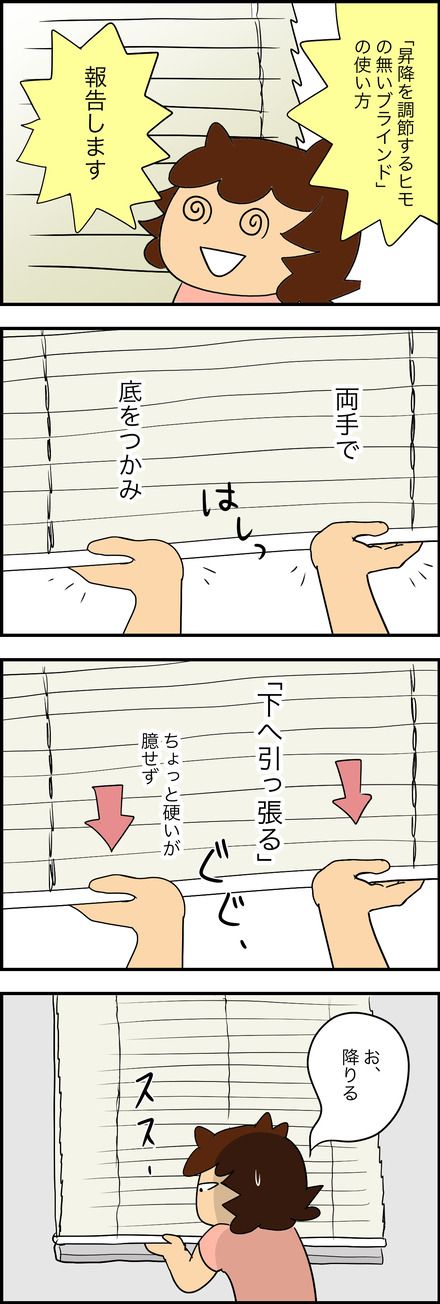 「昇降を調節するヒモ
の無いブラインド」
の使い方
報告します
両手で
底をつかみ
はしっ
「下へ引っ張る」
ちょっと硬いが
臆せず
ぐぐ、
お、
降りる
ススー